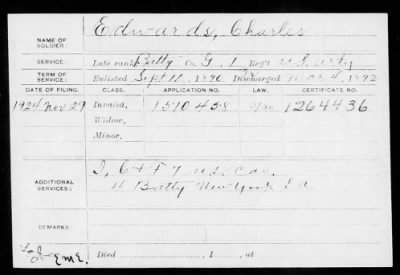 Edwards, Charles
NAME OF SOLDIER:
SERVICE: Late rank, Batty Co. G, 1 Reg't U.S. Arty
TERM OF SERVICE: Enlisted Sept 11, 1890, Discharged Mar 4, 1892
DATE OF FILING. CLASS. APPLICATION NO. LAW. CERTIFICATE NO.
1924 Nov 29 Invalid, 1510458 1264436
Widow,
Minor,
ADDITIONAL SERVICES: I, C & F 7 U.S. Cav.
4 Batty New York L A
REMARKS:
EME.
Died , 1 , at